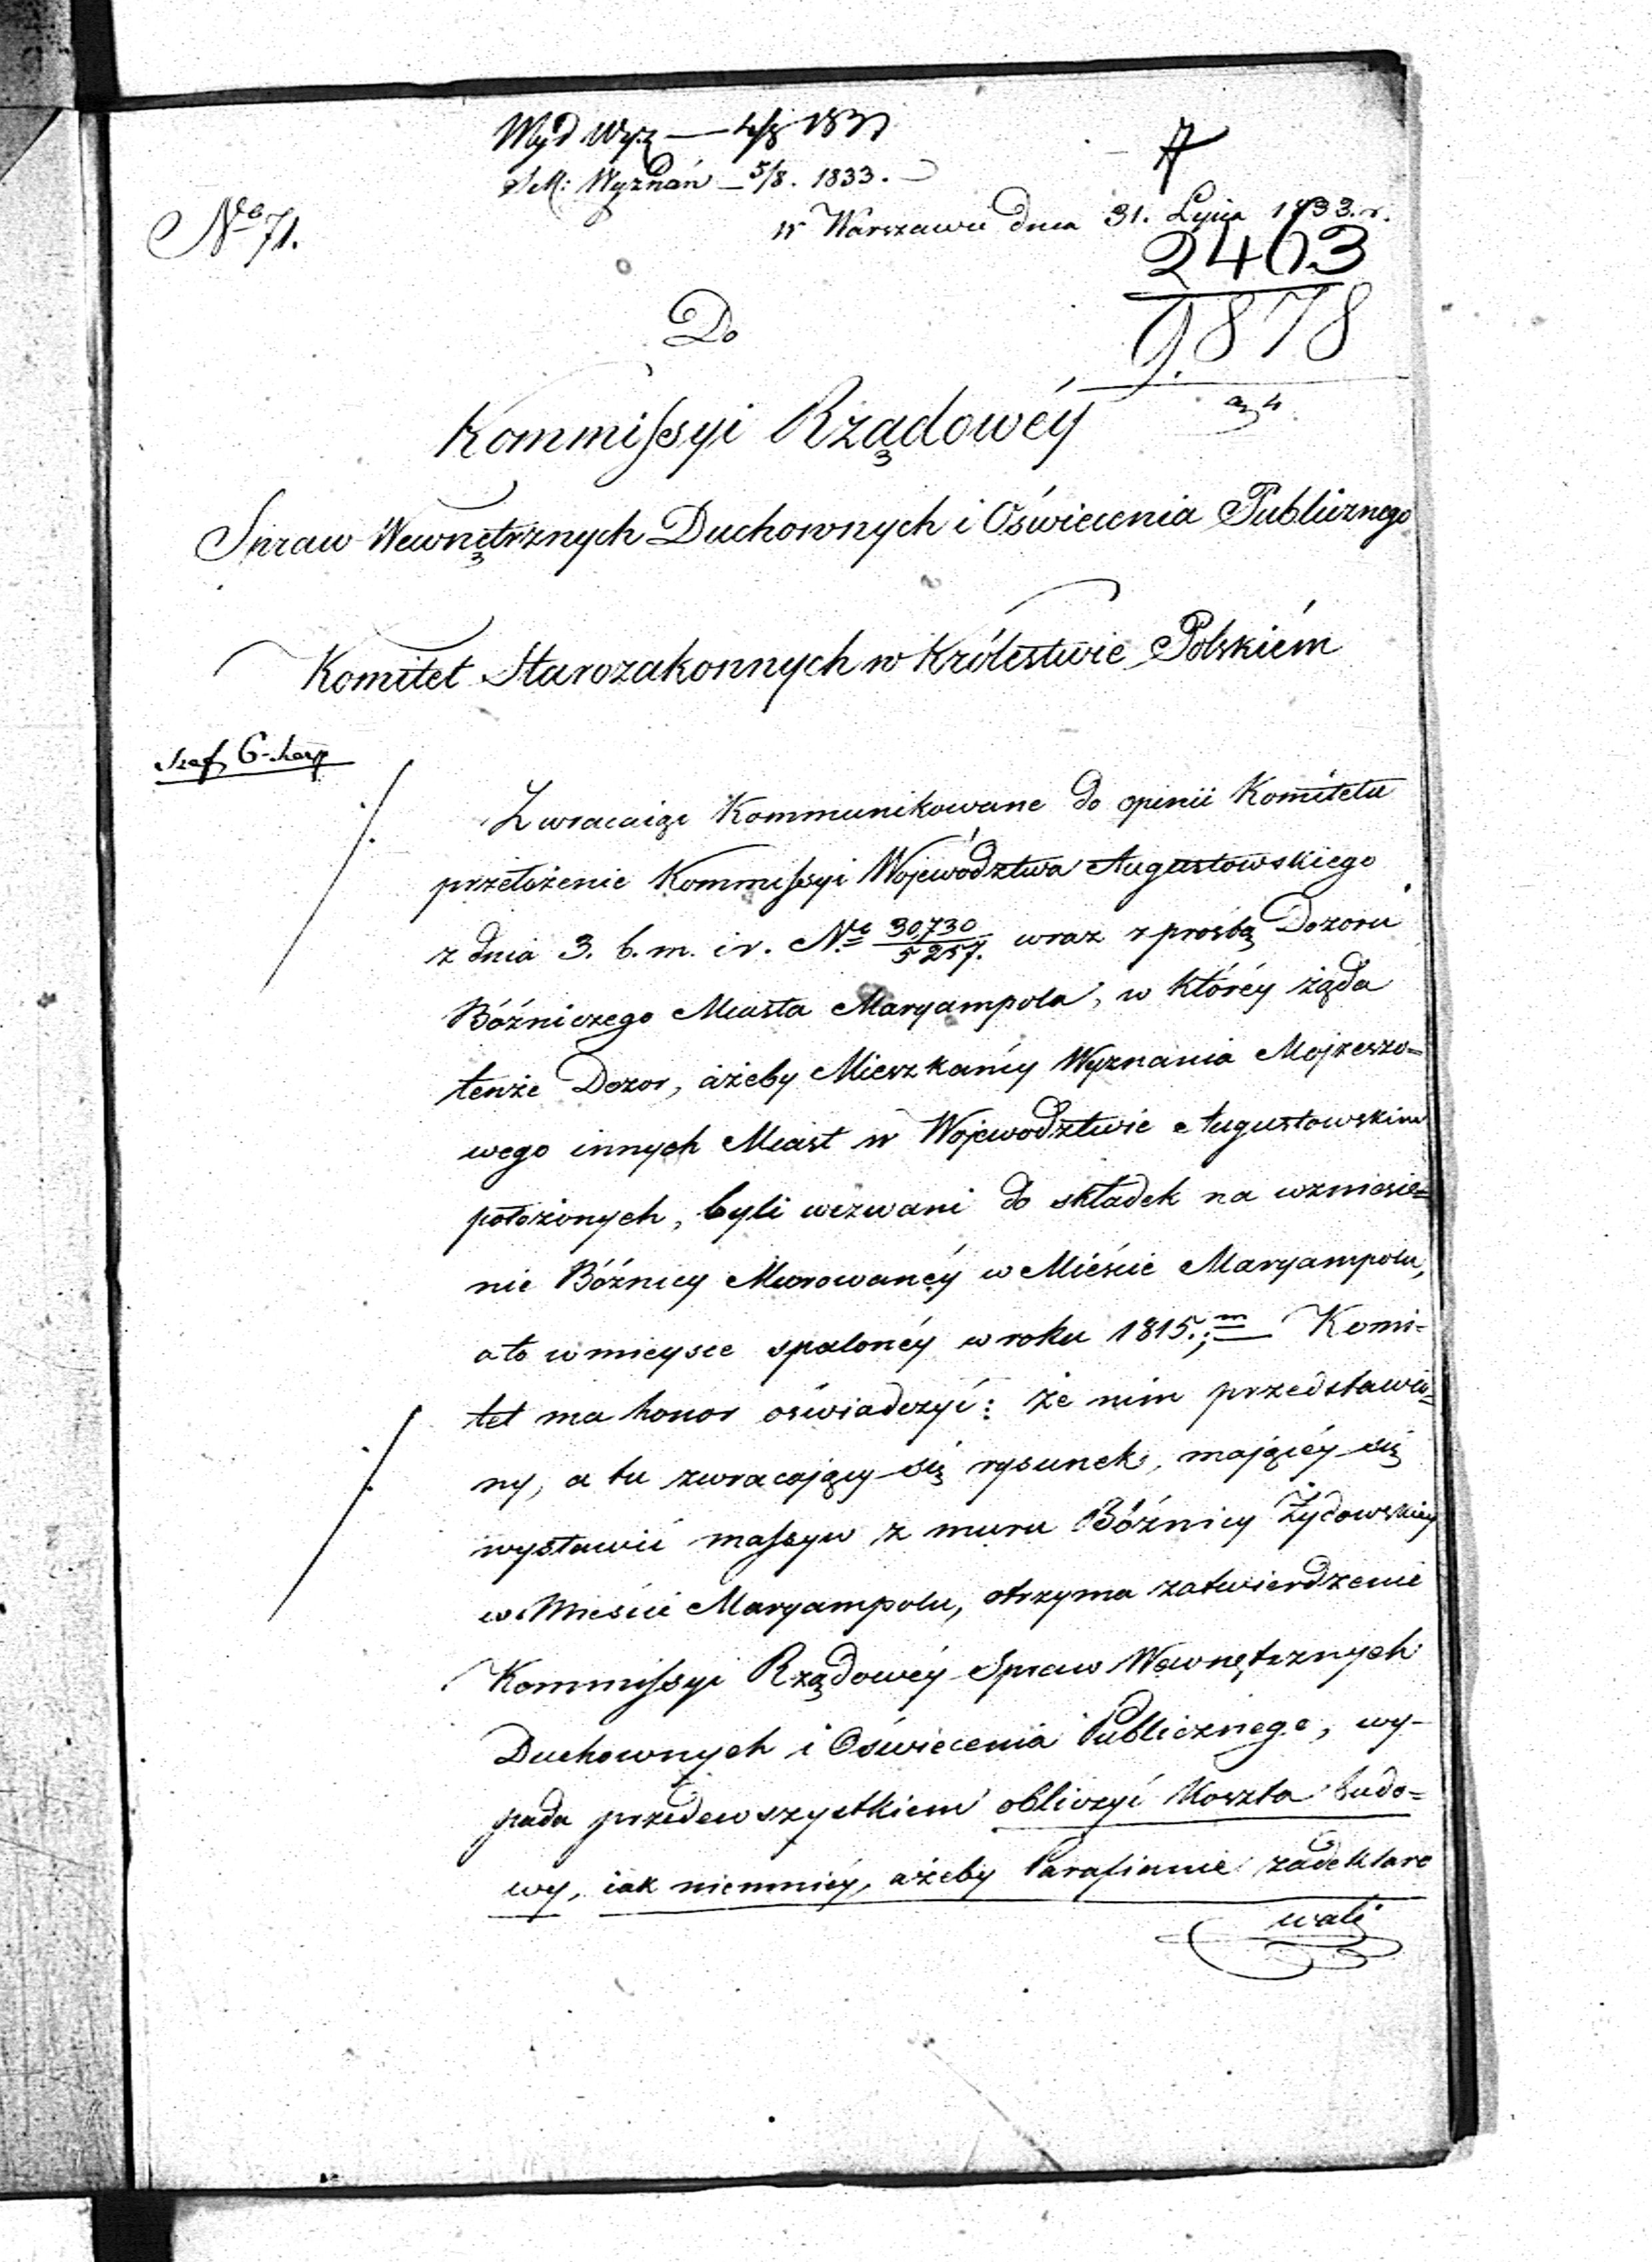 Wyd Wyz — 4/8 1833
Sek: Wyznań — 5/8. 1833.
No 71.
w Warszawie dnia 31. Lipca 1833. r.
2463
9.878
Do
Kommissyi Rządowéy
Spraw Wewnętrznych Duchownych i Oświecenia Publicznego
Komitet Starozakonnych w Królestwie Polskiém
Szef 6
Zwracaiąc Kommunikowane do opinii Komitetu
przełożenie Kommissyi Województwa Augustowskiego
z dnia 3. b. m. i r. No 30,730/5257. wraz z prośbą Dozoru
Bóźniczego Miasta Maryampola, w któréy żąda
tenże Dozor, ażeby Mieszkańcy Wyznania Mojżeszo=
wego innych Miast w Województwie Augustowskim
położonych, byli wezwani do składek na wzniesie=
nie Bóźnicy Murowanéy w Mieście Maryampolu,
a to w mieysce spalonéy w roku 1815.m; Komi=
tet ma honor oświadczyć: że nim przedstawio=
ny, a tu zwracający się rysunek, mającéy się
wystawić massyw z muru Bóźnicy Żydowskiey
w Mieście Maryampolu, otrzyma zatwierdzenie
Kommissyi Rządowéy Spraw Wewnętrznych
Duchownych i Oświecenia Publicznego, wy-
pada przedewszystkiem obliczyć Koszta budo=
wy, iak niemniéy, ażeby Parafianie zadeklaro
wali